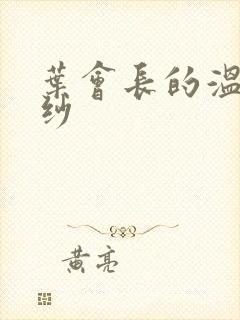 葉會長的溫
紗
黃亮